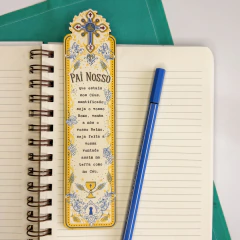 PAI NOSSO
que estais
nos Céus,
santificado
seja o vosso
Nome, venha
a nós o
vosso Reino,
seja feita a
vossa
vontade
assim na
terra como
no Céu.